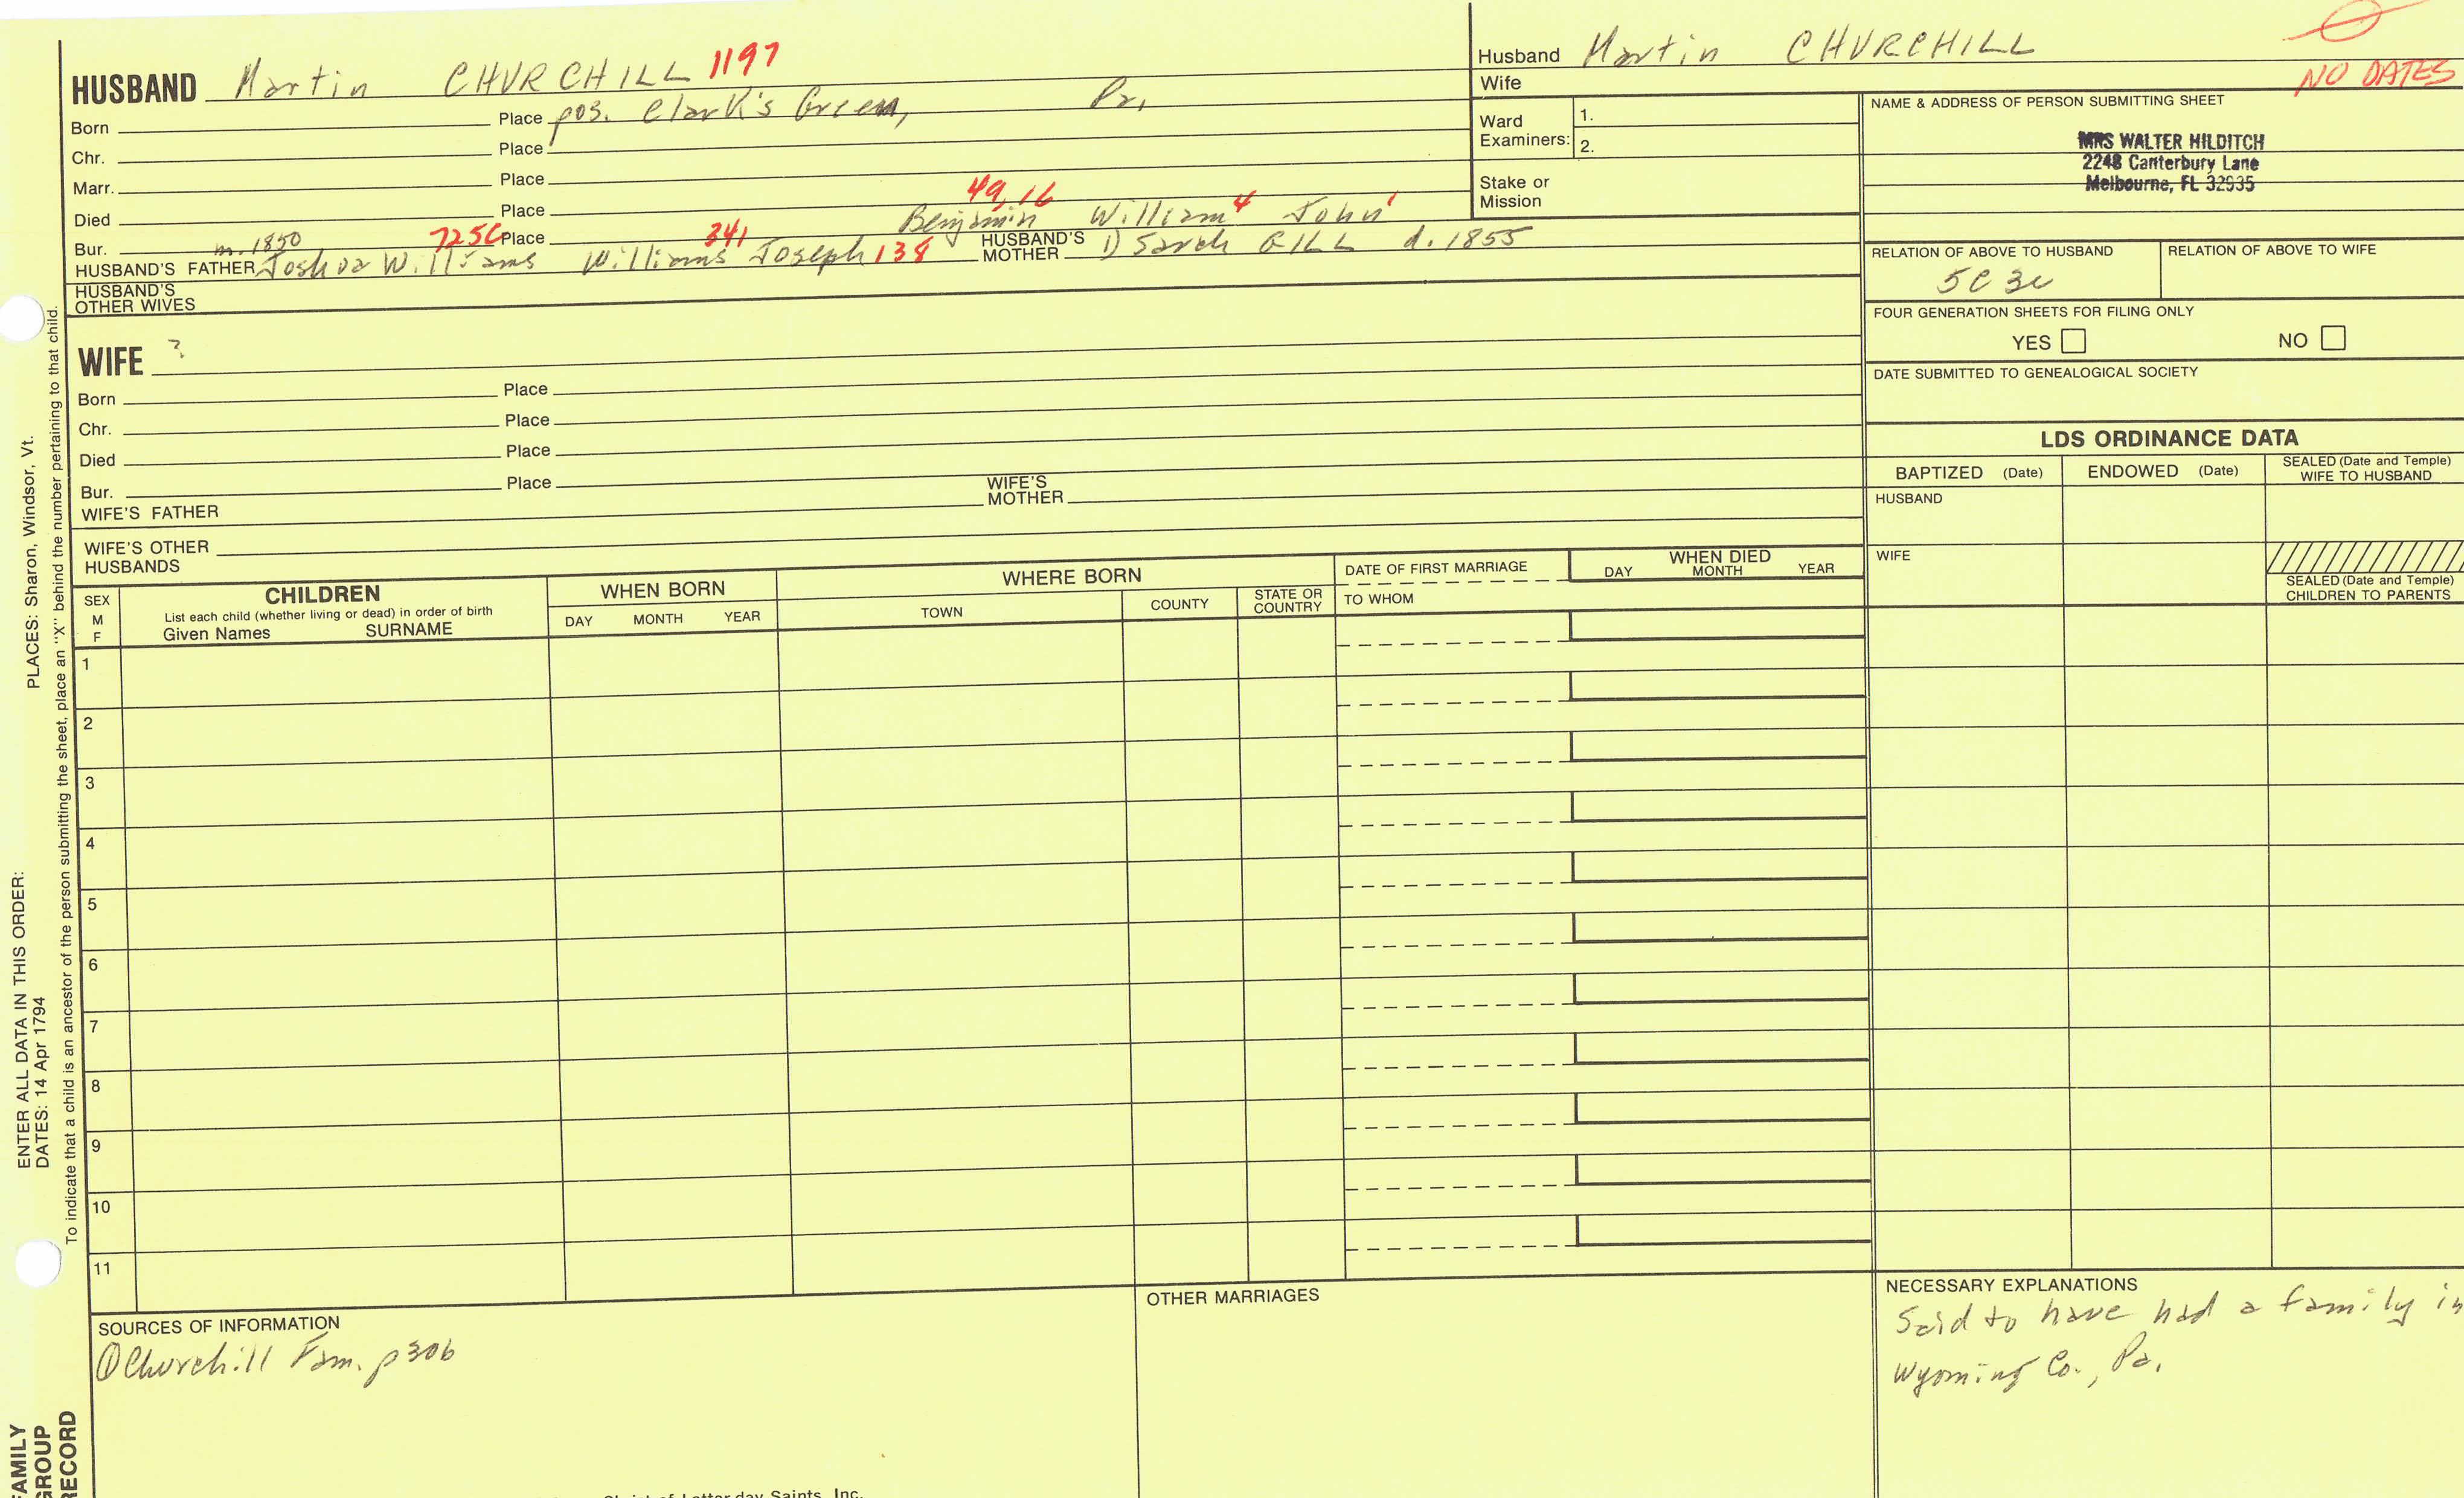 HUSBAND Martin CHURCHILL 1197
Born Place pos. Clark's Green, Pa.
Chr. Place
Marr. Place
Died Place
49,16
Benjamin William 4 John 1
Bur. m. 1850 7256 Place 341
HUSBAND'S FATHER Joshua Williams Williams Joseph 138 HUSBAND'S MOTHER 1) Sarah GILL d. 1855
HUSBAND'S OTHER WIVES
Husband Martin CHURCHILL
Wife
NO DATES
Ward Examiners: 1.
2.
Stake or Mission
NAME & ADDRESS OF PERSON SUBMITTING SHEET
MRS WALTER HILDITCH
2248 Canterbury Lane
Melbourne, FL 32935
RELATION OF ABOVE TO HUSBAND RELATION OF ABOVE TO WIFE
5C 3u
FOUR GENERATION SHEETS FOR FILING ONLY
YES NO
DATE SUBMITTED TO GENEALOGICAL SOCIETY
WIFE ?
Born Place
Chr. Place
Died Place
Bur. Place
WIFE'S FATHER WIFE'S MOTHER
WIFE'S OTHER HUSBANDS
LDS ORDINANCE DATA
BAPTIZED (Date) ENDOWED (Date) SEALED (Date and Temple) WIFE TO HUSBAND
HUSBAND
WIFE
SEALED (Date and Temple) CHILDREN TO PARENTS
SEX M F
CHILDREN
List each child (whether living or dead) in order of birth
Given Names SURNAME
WHEN BORN
DAY MONTH YEAR
WHERE BORN
TOWN COUNTY STATE OR COUNTRY
DATE OF FIRST MARRIAGE
TO WHOM
WHEN DIED
DAY MONTH YEAR
1
2
3
4
5
6
7
8
9
10
11
SOURCES OF INFORMATION
① Churchill Fam. p 306
OTHER MARRIAGES
NECESSARY EXPLANATIONS
Said to have had a family in
Wyoming Co., Pa.
PLACES: Sharon, Windsor, Vt.
ENTER ALL DATA IN THIS ORDER:
DATES: 14 Apr 1794
To indicate that a child is an ancestor of the person submitting the sheet, place an "X" behind the number pertaining to that child.
FAMILY GROUP RECORD
Christ of Latter-day Saints, Inc.